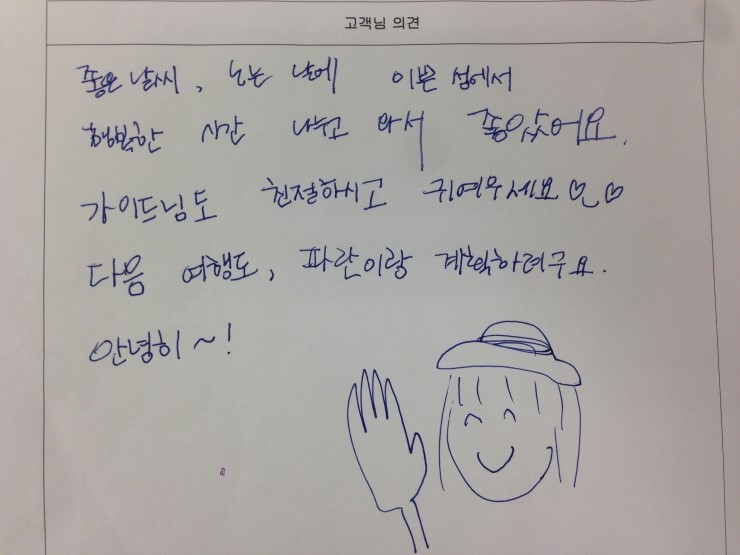 고객님 의견
좋은 날씨, 노는 날에 이쁜 섬에서
행복한 시간 나누고 와서 좋았어요.
가이드님도 친절하시고 귀여우세요♡_♡
다음 여행도, 파란이랑 계획하려구요.
안녕히~!